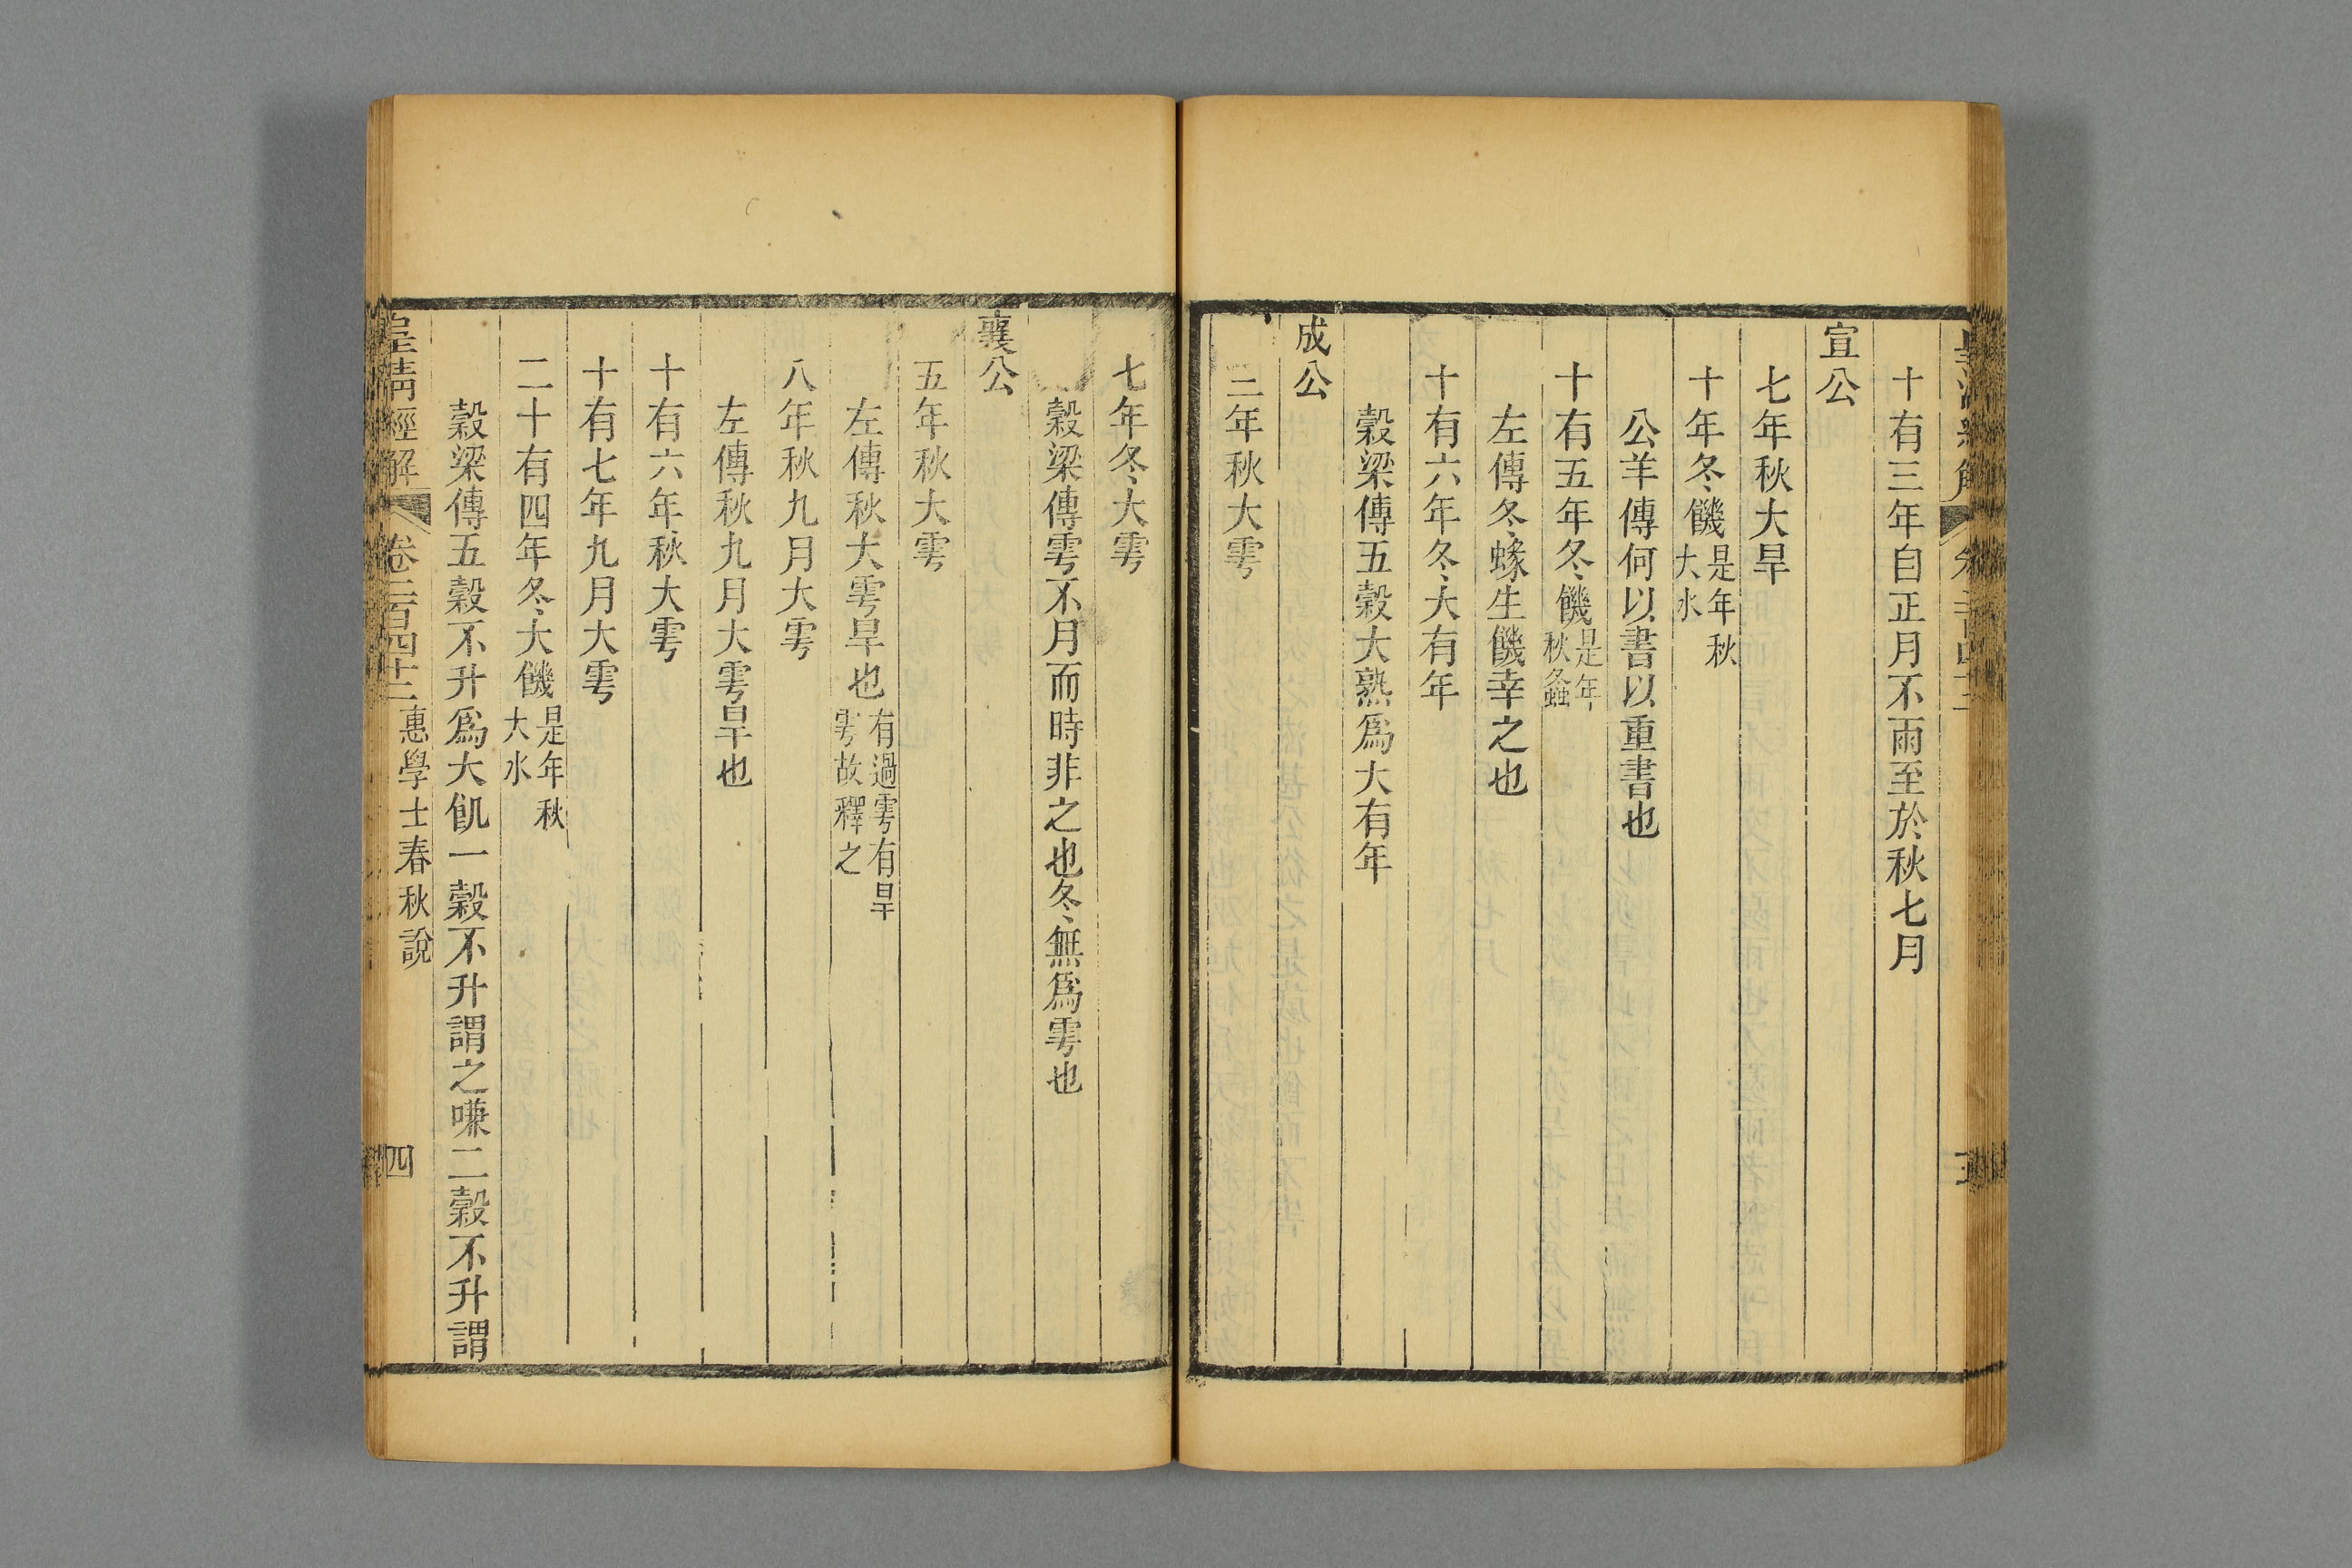 十有三年自正月不雨至於秋七月
宣公
七年秋大旱
十年冬饑是年秋大水
公羊傳何以書以重書也
十有五年冬饑是年秋螽
左傳冬蝝生饑幸之也
十有六年冬大有年
穀梁傳五穀大熟爲大有年
成公
三年秋大雩
七年冬大雩
穀梁傳雩不月而時非之也冬無爲雩也
襄公
五年秋大雩
左傳秋大雩旱也有過雩有旱雩故釋之
八年秋九月大雩
左傳秋九月大雩旱也
十有六年秋大雩
十有七年九月大雩
二十有四年冬大饑是年秋大水
穀梁傳五穀不升爲大飢一穀不升謂之嗛二穀不升謂
皇清經解 卷二百四十二 惠學士春秋說 四